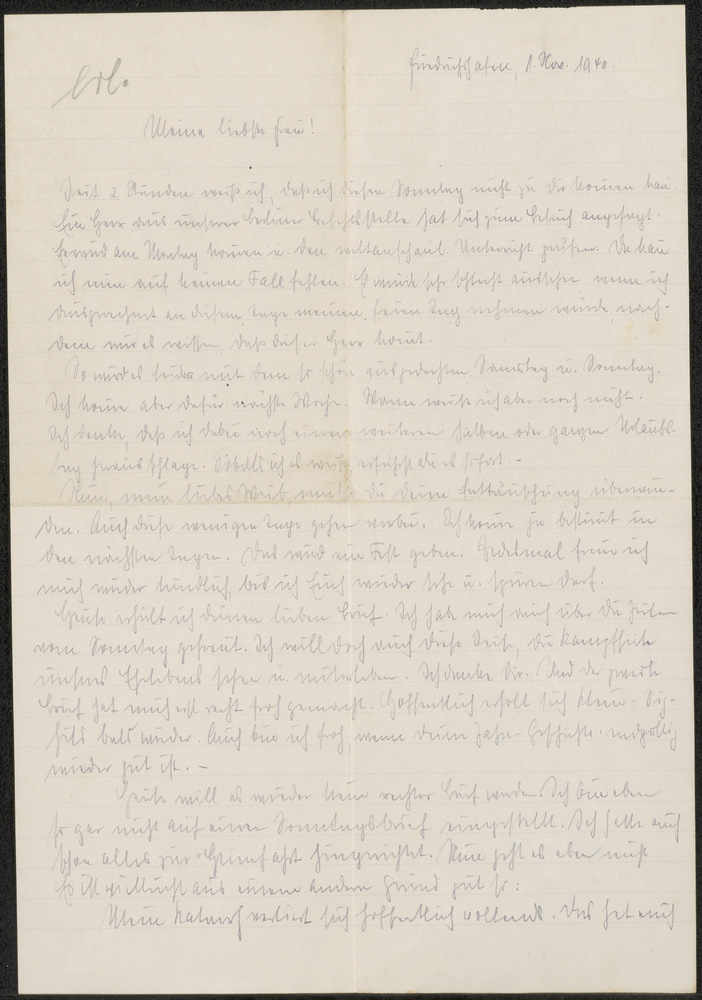 erl.
Friedrichshafen, 1. Nov. 1940.
Meine liebste Frau!
Seit 2 Stunden weiß ich, daß ich diesen Sonntag nicht zu Dir kommen kann.
Ein Herr aus unserer Berliner Befehlsstelle hat sich zum Besuch angesagt.
Er wird am Montag kommen u. den weltanschaul. Unterricht prüfen. Da kann
ich nun auf keinen Fall fehlen. Es würde sehr schlecht aussehen, wenn ich
ausgerechnet an diesem Tage meinen freien Tag nehmen würde, nach-
dem wir es wissen, daß dieser Herr kommt.
So wird es leider mit dem so schön ausgedachten Samstag u. Sonntag.
Ich komme aber dafür nächste Woche. Wann weiß ich aber noch nicht.
Ich denke, daß ich dabei noch einen weiteren halben oder ganzen Urlaubs-
tag herausschlage. Sobald ich es weiß erfährst du es sofort. -
Nun, mein liebes Weib, mußt Du Deine Enttäuschung überwin-
den. Auch diese wenigen Tage gehen vorbei. Ich komme ja bestimmt in
den nächsten Tagen. Das wird ein Fest geben. Jedesmal freue ich
mich wieder kindlich, bis ich Euch wieder sehe u. spüren darf.
Heute erhielt ich deinen lieben Brief. Ich habe mich auch über die Zeilen
vom Sonntag gefreut. Ich will doch auch diese Seite, die Kampfseite
unseres Ehelebens sehen u. miterleben. Ich danke Dir. Und der zweite
Brief hat mich erst recht froh gemacht. Hoffentlich erholt sich klein-Sig-
hild bald wieder. Auch bin ich froh, wenn Deine Zahn-Geschichte endgültig
wieder gut ist. -
Heute will es wieder kein rechter Brief werden. Ich bin eben
so gar nicht auf einen Sonntagsbrief eingestellt. Ich hatte auch
schon alles zur Heimfahrt hingerichtet. Nun geht es eben nicht.
Es ist vielleicht aus einem andern Grund gut so:
Mein Katarrh verliert sich hoffentlich vollends. Das hat auch